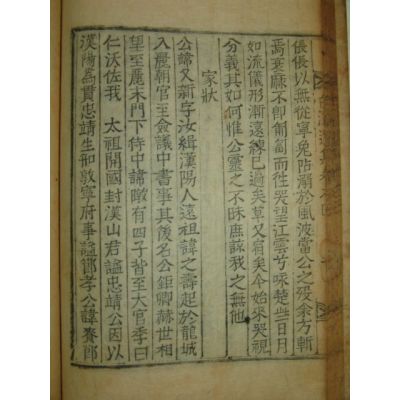 倀倀以無從寧免陷溺於風波當公之歿余方斬
焉衰麻不卽匍匐而徃哭望江雲兮咏楚些日月
如流儀形漸遠練已過矣草又宿矣今始來哭視
分義其如何惟公靈之不昧庶諒我之無他
家狀
公諱又新字汝緝漢陽人遠祖諱之壽起於龍城
入麗朝官至僉議中書事其後名公鉅卿赫世相
望至麗末門下侍中諱暾有四子皆至大官季曰
仁沃佐我 太祖開國封漢山君諡忠靖公因以
漢陽爲貫忠靖生知敦寧府事諡孝公諱賚